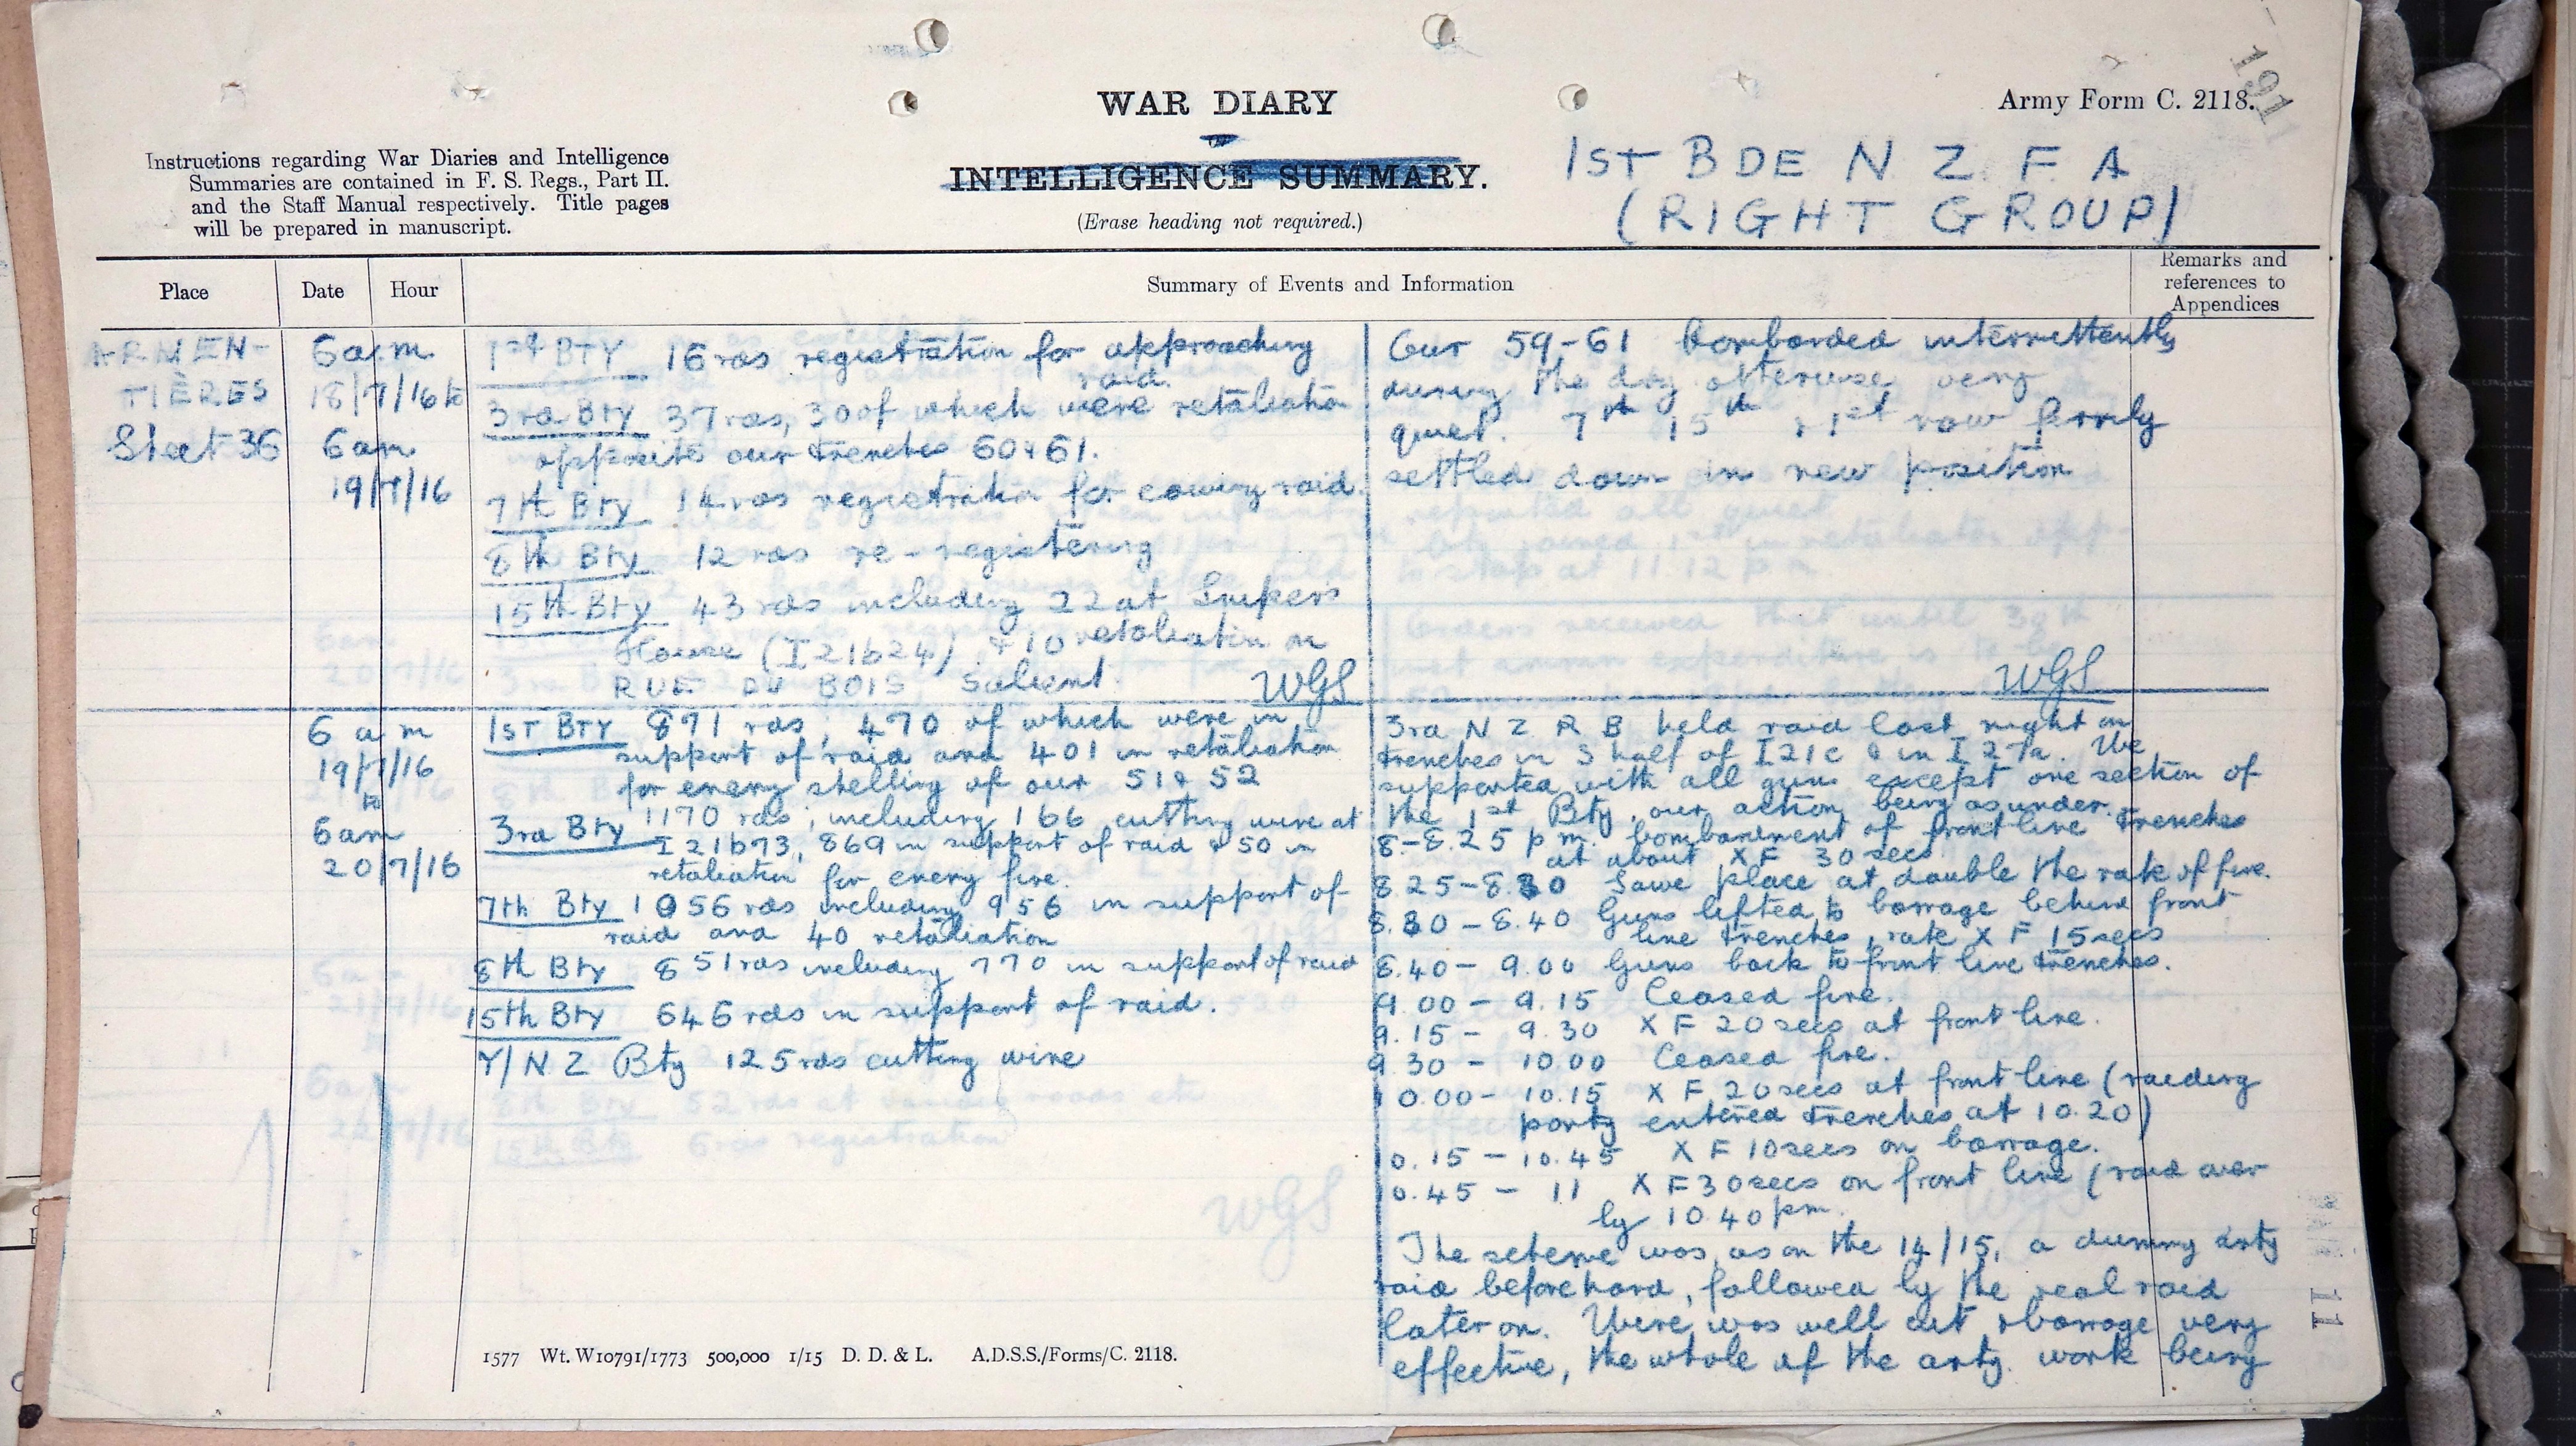 191
WAR DIARY
Army Form C. 2118.
or
INTELLIGENCE SUMMARY.
(Erase heading not required.)
Instructions regarding War Diaries and Intelligence
Summaries are contained in F. S. Regs., Part II.
and the Staff Manual respectively. Title pages
will be prepared in manuscript.
1ST BDE N Z F A
(RIGHT GROUP)
Place
Date
Hour
Summary of Events and Information
Remarks and
references to
Appendices
ARMEN-
TIÈRES
Sheet 36
6 a.m
18/7/16 to
6 am
19/7/16
1st BTY 16 rds registration for approaching
raid.
3rd Bty 37 rds, 30 of which were retaliation
opposite our trenches 60 & 61.
7th Bty 14 rds registration for coming raid.
8th Bty 12 rds re-registering
15th Bty 43 rds including 22 at Sniper's
House (I21b24) & 10 retaliation on
RUE DU BOIS Salient.
WGS
Our 59-61 bombarded intermittently
during the day otherwise very
quiet. 7th 15th & 1st now firmly
settled down in new position
WGS
6 a m
19/7/16
to
6 am
20/7/16
1ST BTY 871 rds, 470 of which were in
support of raid and 401 in retaliation
for enemy shelling of our 51 & 52
3rd Bty 1170 rds, including 166 cutting wire at
I 21b73, 869 in support of raid & 50 in
retaliation for enemy fire.
7th Bty 1056 rds including 956 in support of
raid and 40 retaliation
8th Bty 851 rds including 770 in support of raid
15th Bty 646 rds in support of raid.
Y/N Z Bty 125 rds cutting wire
3rd N Z R B held raid last night on
trenches in S half of I21c & in I 27a. We
supported with all guns except one section of
the 1st Bty, our action being as under.
8-8.25 p m. bombardment of front line trenches
at about X F 30 secs
8.25-8.30 Same place at double the rate of fire.
8.30-8.40 Guns lifted to barrage behind front
line trenches, rate X F 15 secs
8.40- 9.00 Guns back to front line trenches.
9.00 - 9.15 Ceased fire.
9.15 - 9.30 X F 20 secs at front line.
9.30 - 10.00 Ceased fire.
10.00- 10.15 X F 20 secs at front line (raiding
party entered trenches at 10.20)
10.15 - 10.45 X F 10 secs on barrage.
10.45 - 11 X F 30 secs on front line (raid over
by 10.40 pm.
The scheme was, as on the 14/15, a dummy arty
raid beforehand, followed by the real raid
later on. Wire was well cut & barrage very
effective, the whole of the arty. work being
1577 Wt. W10791/1773 500,000 1/15 D. D. & L. A.D.S.S./Forms/C. 2118.
11